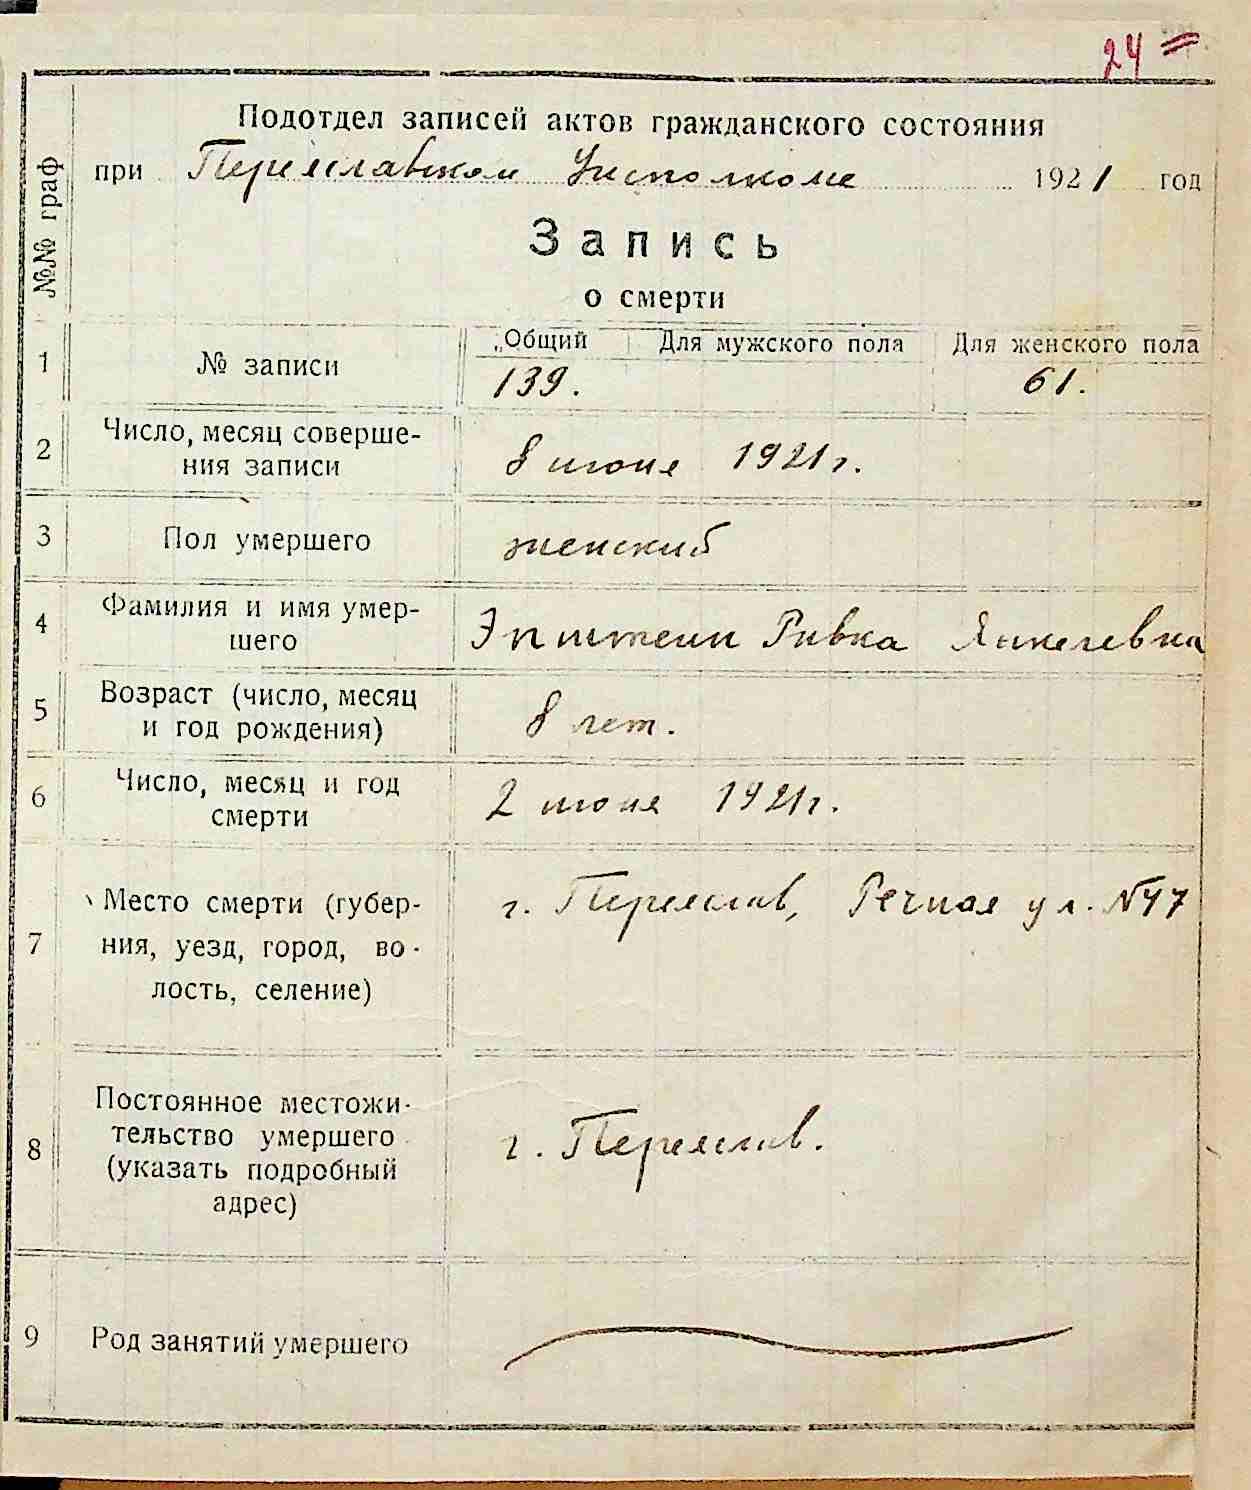 24=
Подотдел записей актов гражданского состояния
при Переяславском Уисполкоме 1921 год
№№ граф
Запись
о смерти
1 № записи Общий Для мужского пола Для женского пола
139. 61.
2 Число, месяц соверше-
ния записи 8 июня 1921 г.
3 Пол умершего женский
4 Фамилия и имя умер-
шего Эпштеин Ривка Янкелевна
5 Возраст (число, месяц
и год рождения) 8 лет.
6 Число, месяц и год
смерти 2 июня 1921 г.
7 Место смерти (губер-
ния, уезд, город, во-
лость, селение) г. Переяслав, Речная ул. №47
8 Постоянное местожи-
тельство умершего
(указать подробный
адрес) г. Переяслав.
9 Род занятий умершего